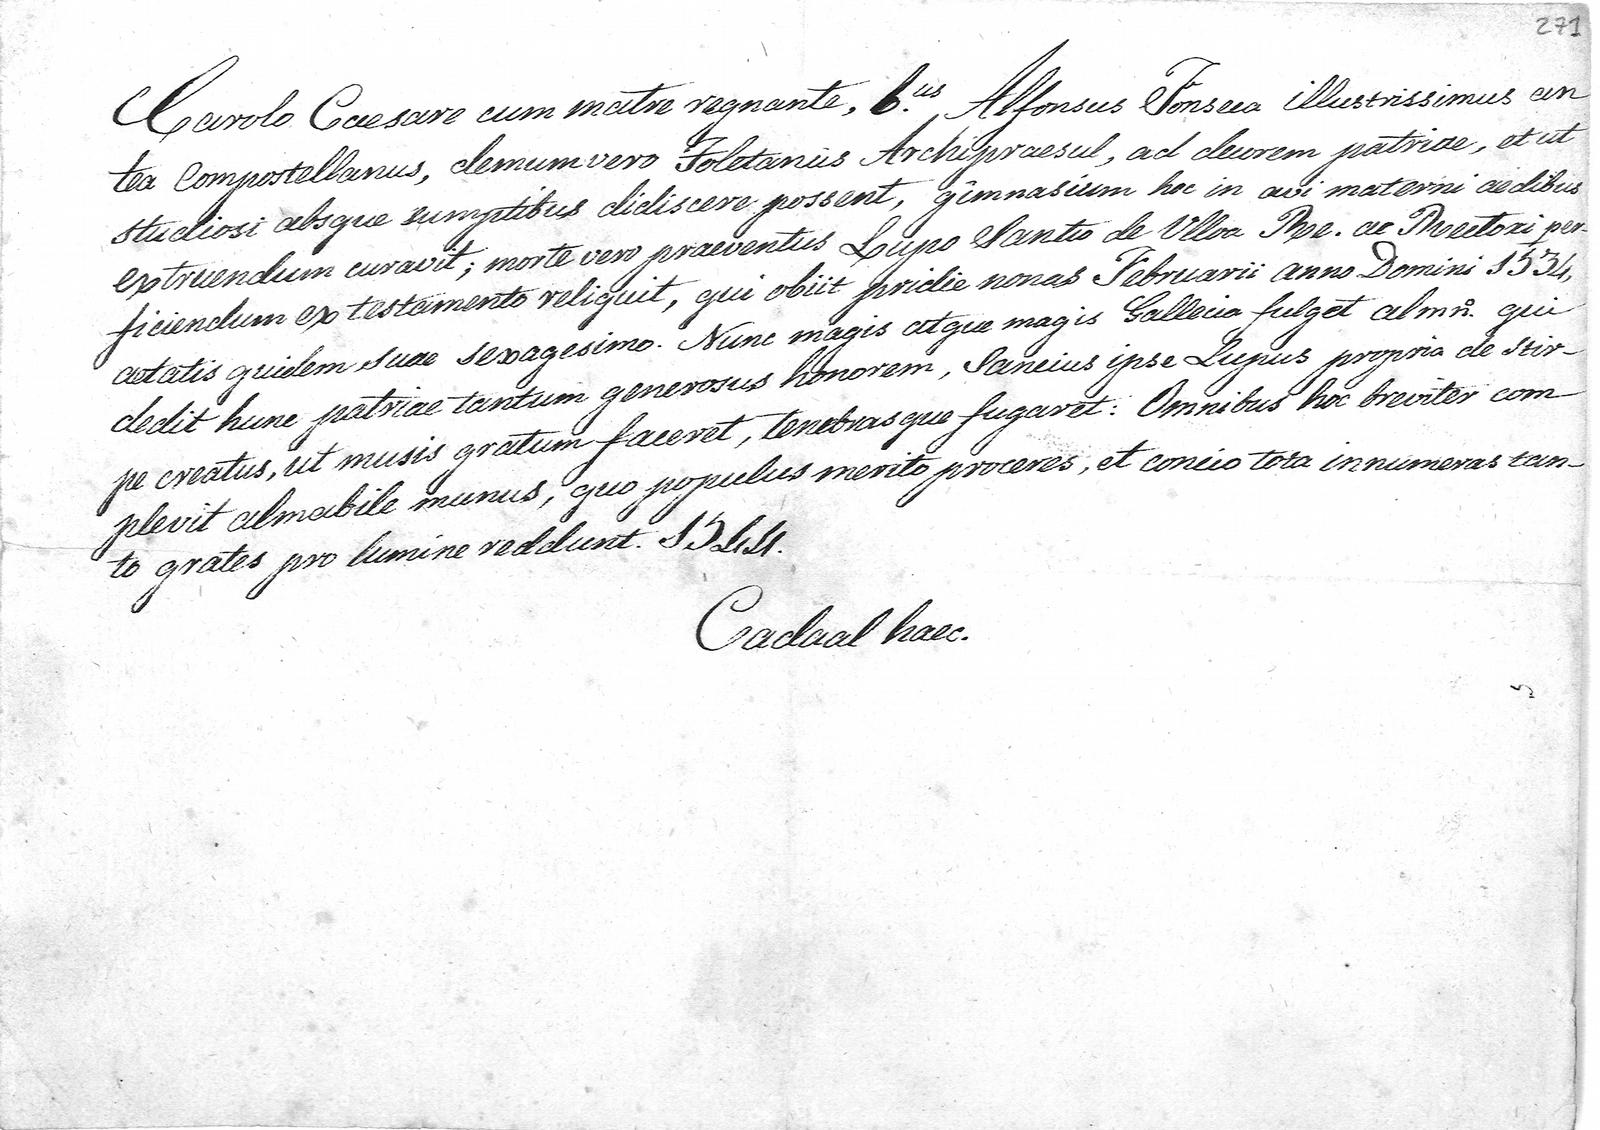 271
Carolo Caesare cum matre regnante, b.us Alfonsus Fonseca illustrissimus an
tea Compostellanus, demum vero Toletanus Archipraesul, ad decorem patriae, et ut
studiosi absque sumptibus didiscere possent, gimnasium hoc in avi materni aedibus
extruendum curavit; morte vero praeventus Lupo Santio de Ulloa Re. ac Rectori per-
ficiendum ex testamento reliquit, qui obiit pridie nonas Februarii anno Domini 1534,
aetatis quidem suae sexagesimo. Nunc magis atque magis Gallecia fulget almn. qui
dedit hunc patriae tantum generosus honorem, Sancius ipse Lupus propria de stir-
pe creatus, ut musis gratum faceret, tenebrasque fugaret: Omnibus hoc breviter com
plevit almabile munus, quo populus merito proceres, et concio tota innumeras tan-
to grates pro lumine reddunt. 1544.
Cadaal haec.